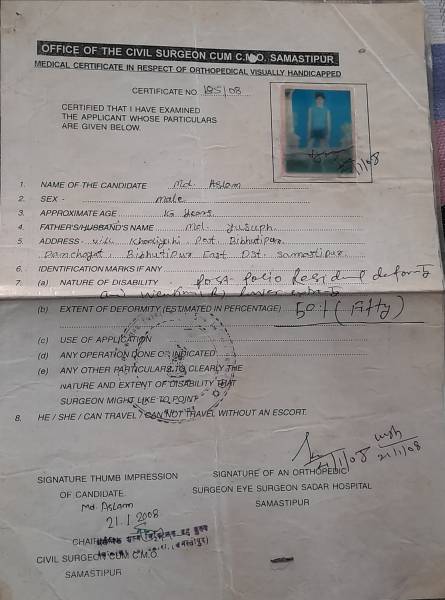 OFFICE OF THE CIVIL SURGEON CUM C.M.O. SAMASTIPUR
MEDICAL CERTIFICATE IN RESPECT OF ORTHOPEDICAL VISUALLY HANDICAPPED
CERTIFICATE NO. 185/08
CERTIFIED THAT I HAVE EXAMINED
THE APPLICANT WHOSE PARTICULARS
ARE GIVEN BELOW.
1. NAME OF THE CANDIDATE Md. Aslam
2. SEX - male
3. APPROXIMATE AGE 16 years
4. FATHER'S/HUSBAND'S NAME Md. Yusuph
5. ADDRESS - Vill. Post. Bibhutipur
Panchayat Bibhutipur East Dst. Samastipur
6. IDENTIFICATION MARKS IF ANY
7. (a) NATURE OF DISABILITY - Post Polio Residual deformity
and lower
(b) EXTENT OF DEFORMITY (ESTIMATED IN PERCENTAGE) 50% (Fifty)
(c) USE OF APPLICATION
(d) ANY OPERATION DONE OR INDICATED
(e) ANY OTHER PARTICULARS TO CLEARLY THE
NATURE AND EXTENT OF DISABILITY THAT
SURGEON MIGHT LIKE TO POINT
8. HE / SHE / CAN TRAVEL / CAN NOT TRAVEL WITHOUT AN ESCORT.
21/1/08 21/1/08
SIGNATURE THUMB IMPRESSION
OF CANDIDATE.
Md. Aslam
21.1.2008
SIGNATURE OF AN ORTHOPEDIC
SURGEON EYE SURGEON SADAR HOSPITAL
SAMASTIPUR
CIVIL SURGEON CUM C.M.O.
SAMASTIPUR